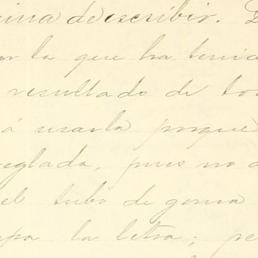 uina de escribir.
or la que ha teni
resultado de to
á usarla porque
reglada, pues no
el tubo de goma
upa la letra; pe